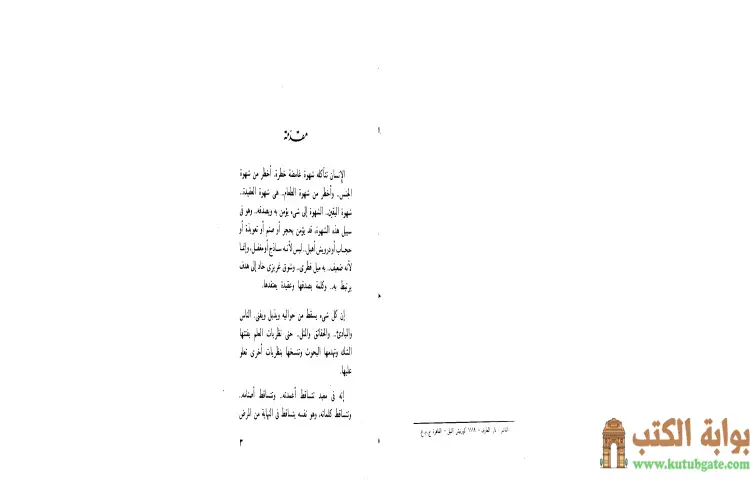 مقدمة
الإنسان تتآكله شهوة غامضة خطرة. أخطر من شهوة
الجنس.. وأخطر من شهوة الطعام.. هى شهوة العقيدة..
شهوة اليقين.. الشهوة إلى شىء يؤمن به ويصدقه.. وهو فى
سبيل هذه الشهوة، قد يؤمن بحجر أو صنم أو تعويذة أو
حجاب أو درويش أهبل.. ليس لأنه ساذج أو مغفل، وإنما
لأنه ضعيف.. به ميل فطرى.. وشوق غريزى حاد إلى هدف
يرتبط به.. وكلمة يصدقها وعقيدة يعتقدها.
إن كل شىء يسقط من حواليه ويذبل ويفنى. الناس
والمبادئ.. والحقائق والمثل.. حتى نظريات العلم يفتتها
الشك وتهدمها البحوث وتنسخها نظريات أخرى تعلو
عليها.
إنه فى معبد تتساقط أعمدته.. وتتساقط أصنامه..
وتتساقط كلماته، وهو نفسه يتساقط فى النهاية من المرض
٣
الناشر : دار المعارف - ١١١٩ كورنيش النيل - القاهرة ج.م.ع
بوابة الكتب
www.kutubgate.com